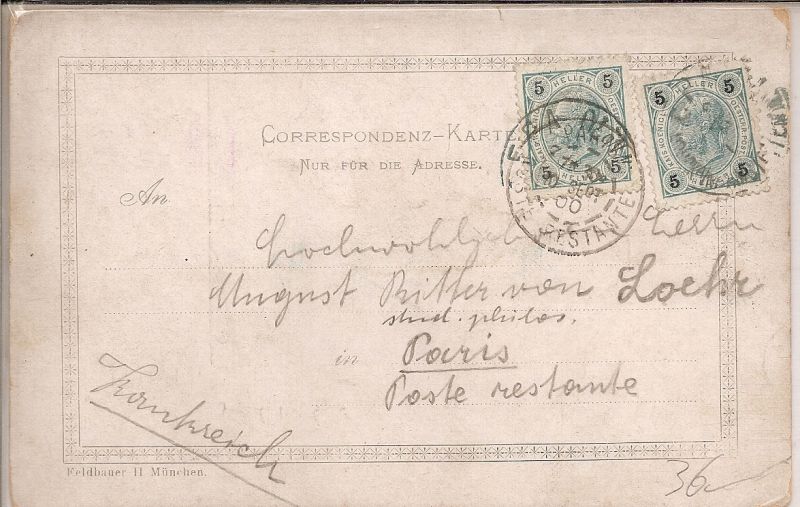 CORRESPONDENZ-KARTE
NUR FÜR DIE ADRESSE.
5 HELLER 5
5 HELLER 5
5 HELLER 5
5 5
PARIS
SEPT
00
RESTANTE
An
Hochwohlgeb Herrn
August Ritter von Loehr
stud. philos.
in Paris
Poste restante
Frankreich
Feldbauer II München.
36